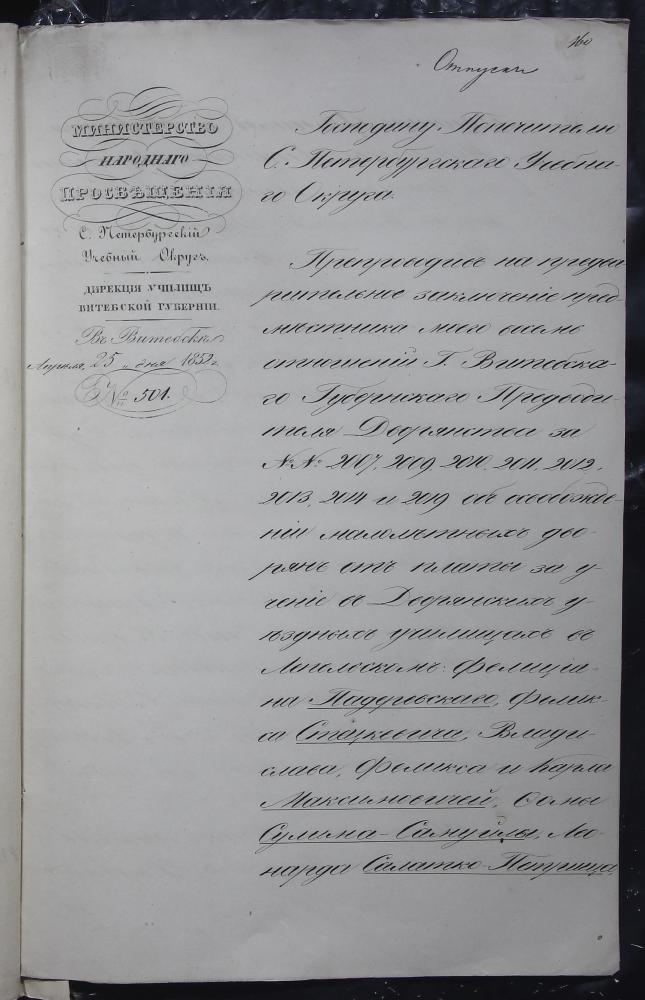 160
Отпускъ
МИНИСТЕРСТВО
НАРОДНАГО
ПРОСВѢЩЕНІЯ
С. Петербургскій
Учебный Округъ.
ДИРЕКЦІЯ УЧИЛИЩЪ
ВИТЕБСКОЙ ГУБЕРНІИ.
Въ Витебскѣ
Апрѣля, 25 „ дня 1852 г.
№ 501.
Господину Попечителю
С. Петербургскаго Учебна-
го Округа.
Препроводивъ на предва
рительное заключеніе пред
мѣстника моего восемь
отношеній Г. Витебска-
го Губернскаго Предводи-
теля Дворянства за
№№: 2007, 2009, 2010, 2011, 2012,
2013, 2014 и 2019 объ освобожде-
ніи маломѣтныхъ дво-
рянъ отъ платы за у-
ченіе въ Дворянскихъ у-
ѣздныхъ училищахъ въ
Лепельскомъ: Фелиціа-
на Падеревскаго, Фелик-
са Стацкевича, Влади-
слава, Феликса и Карла
Максимовичей, Фомы
Сулима-Самуйлы, Лео-
нарда Салатко-Петрища,